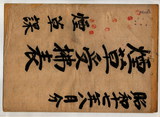 昭和十七年八月分
煙草受拂表
煙草課